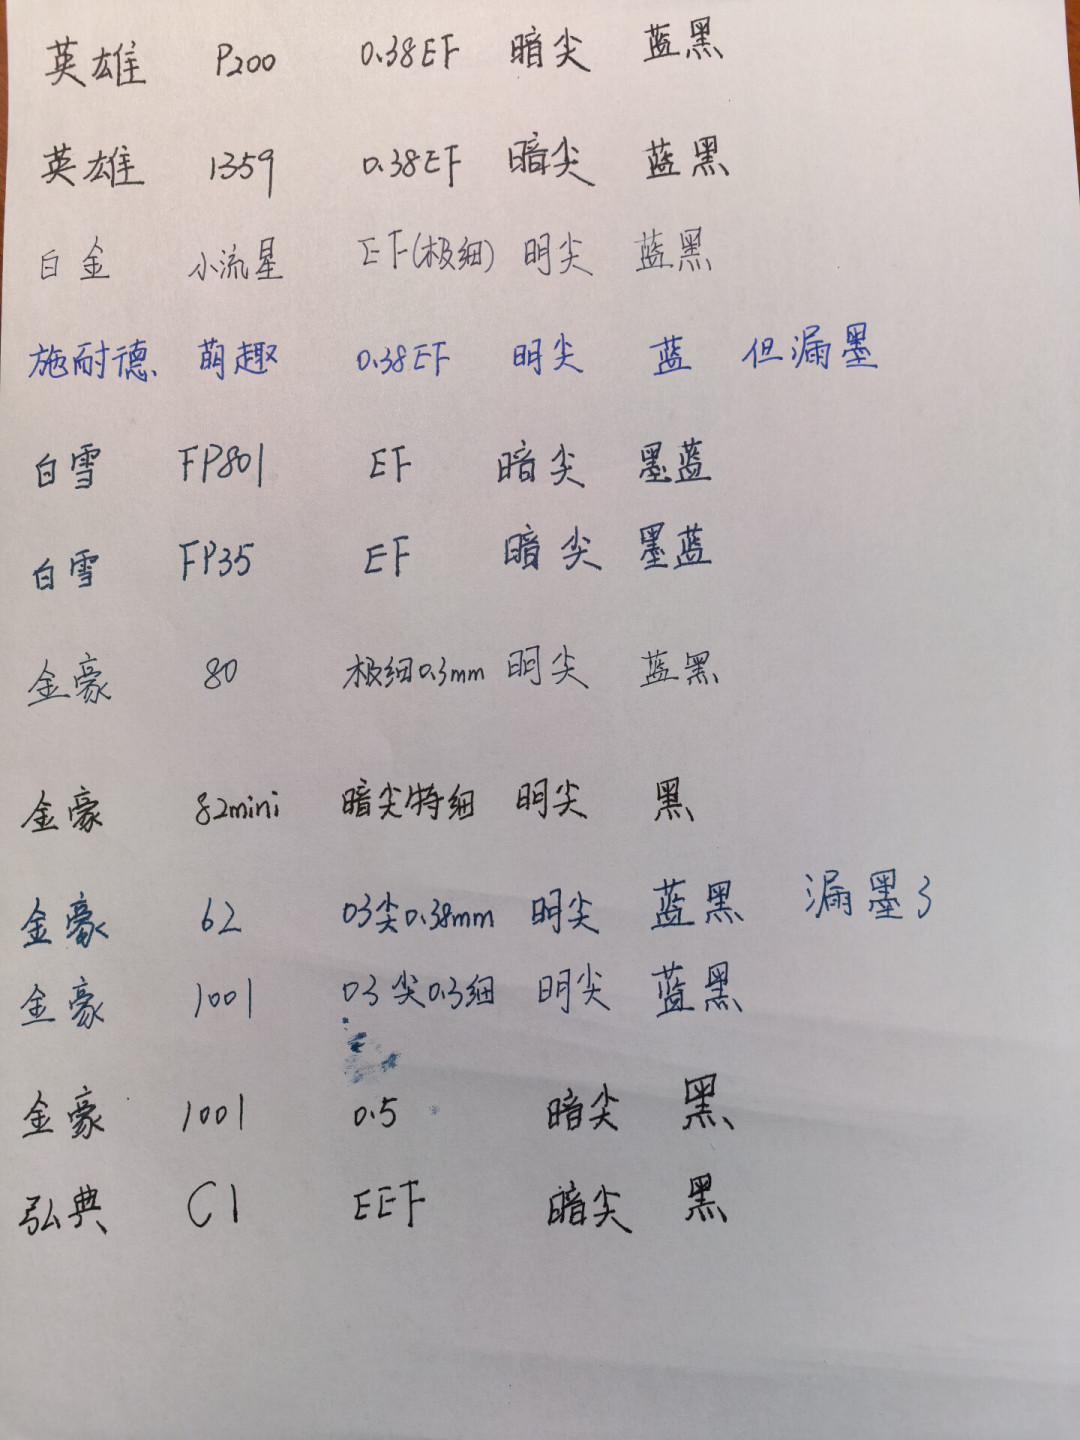 英雄 P200 0.38EF 暗尖 蓝黑
英雄 1359 0.38EF 暗尖 蓝黑
白金 小流星 EF(极细) 明尖 蓝黑
施耐德 萌趣 0.38EF 明尖 蓝 但漏墨
白雪 FP801 EF 暗尖 墨蓝
白雪 FP35 EF 暗尖 墨蓝
金豪 80 极细0.3mm 明尖 蓝黑
金豪 82mini 暗尖特细 明尖 黑
金豪 62 03尖0.38mm 明尖 蓝黑 漏墨了
金豪 1001 03尖0.3细 明尖 蓝黑
金豪 1001 0.5 暗尖 黑
弘典 C1 EEF 暗尖 黑